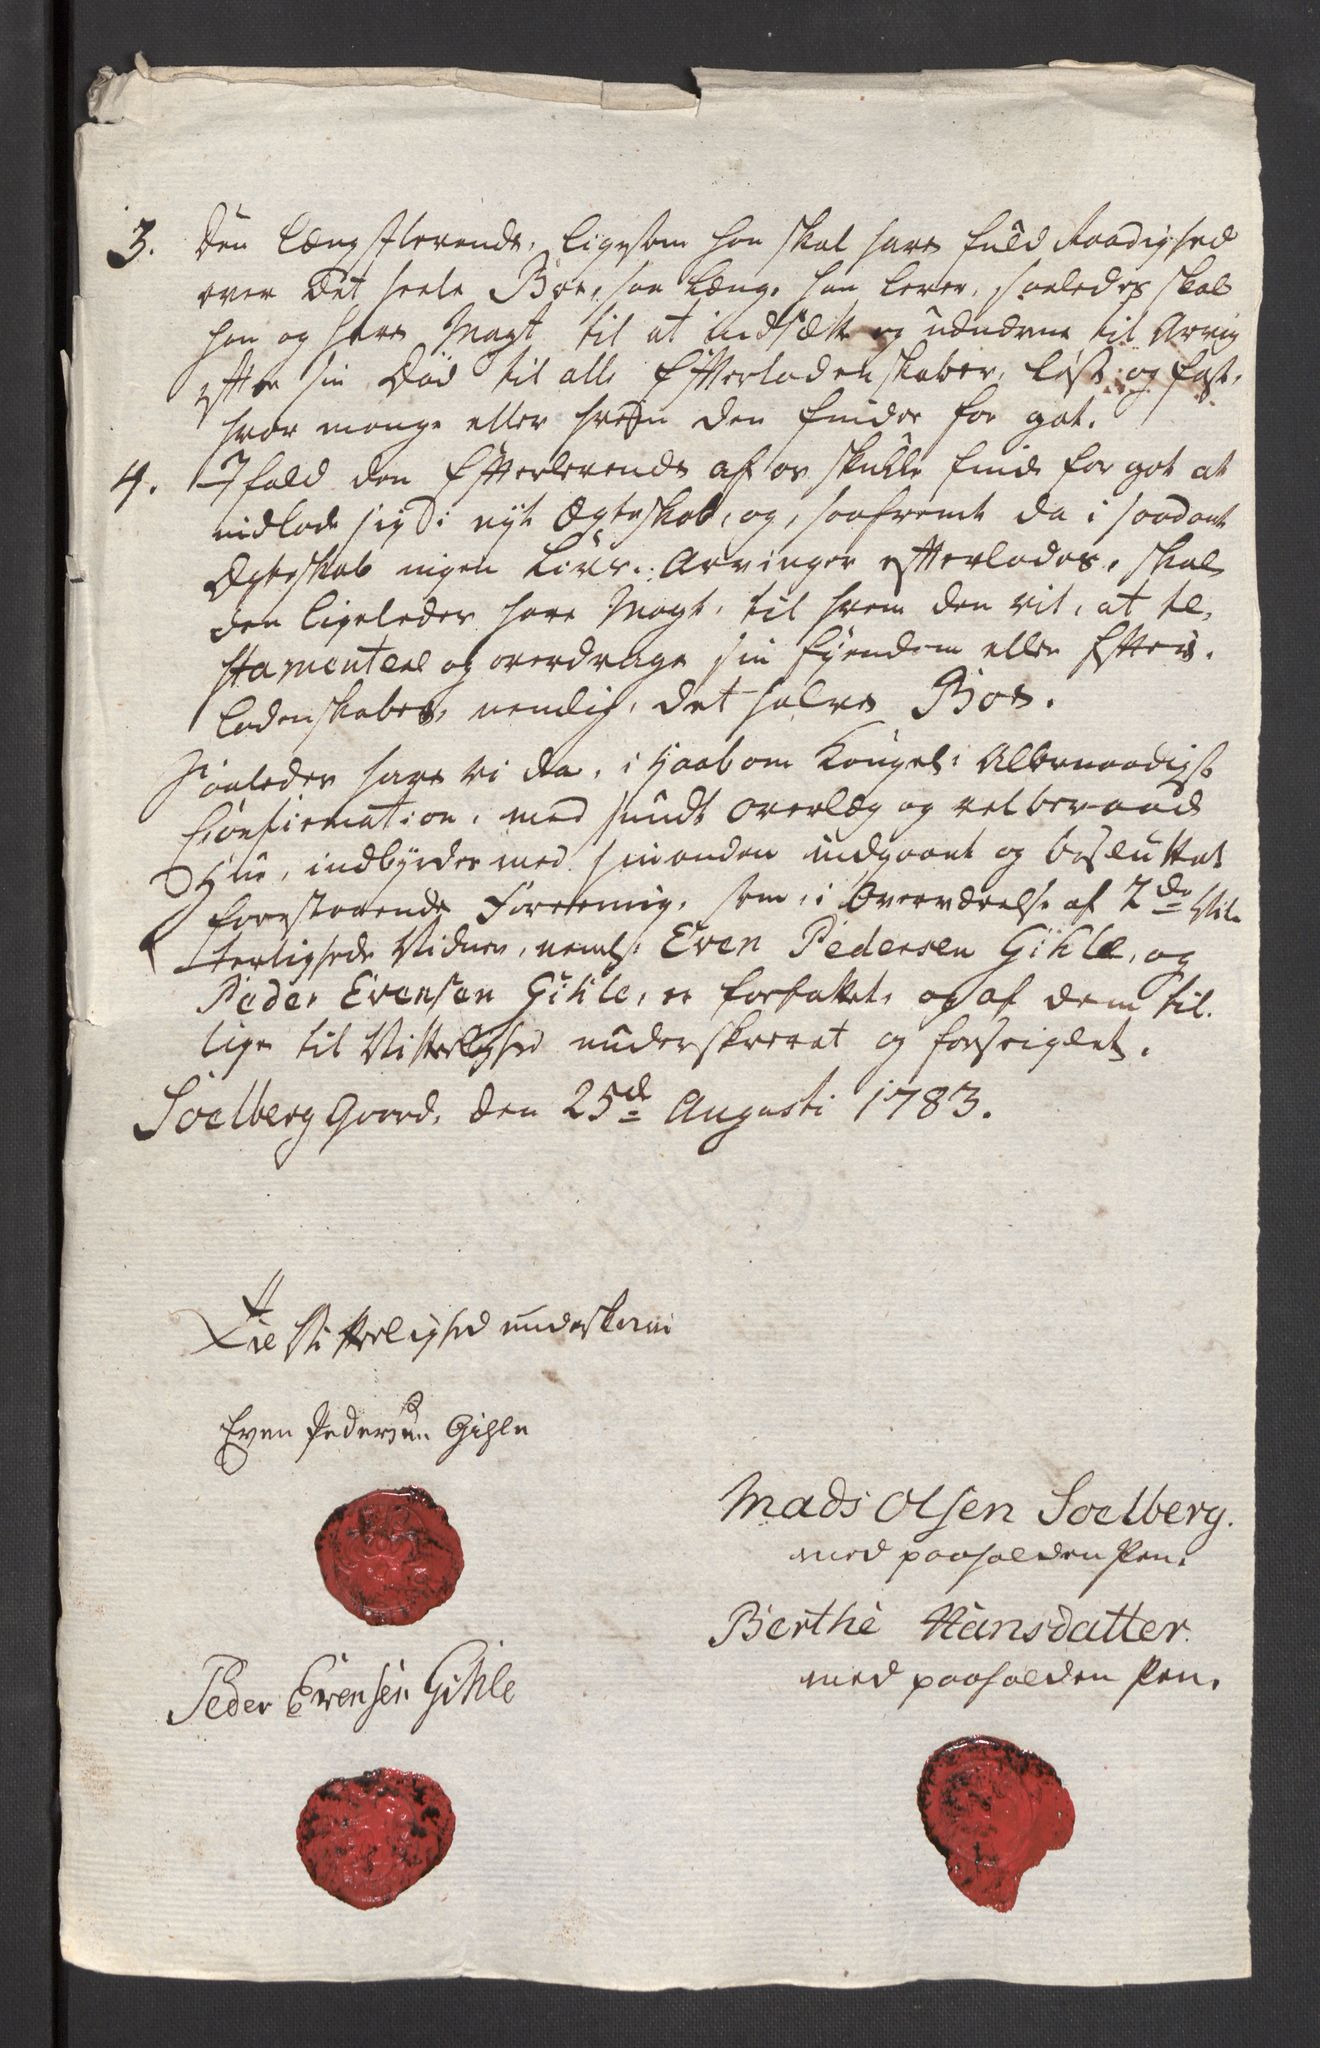 3. Den Længstlevende, ligesom han skal have fuld Raadighed
over det heele Boe, saa længe han lever, saaledes skal
han og have Magt til at indsætte og udnævne til Arving
efter sin Død til alle Efterladenskaber, løst og fast,
hvor mange eller hvem den finder for got.
4. Ifald den Efterlevende af os skulle finde for got at
indlade sig i nyt Ægteskab, og, saafremt da i saadant
Ægteskab ingen Livs-Arvinger efterlades, skal
den ligeledes have Magt, til hvem den vil, at te-
stamentere og overdrage sin Ejendom eller Efter-
ladenskaber, nemlig, det halve Boe.
Saaledes have vi da, i Haab om Kongel: Allernaadigst
Confirmation, med sundt Overlæg og velberaad
Hue, indbyrdes med hinanden indgaaet og besluttet
forestaaende Foreening, som, i Overværelse af 2de Vit-
terligheds Vidner, neml: Even Pedersen Gihle, og
Peder Evensen Gihle, er forfattet, og af dem til-
lige til Vitterlighed underskrevet og forseiglet.
Soelberg Gaard, den 25de Augusti 1783.
Til Vitterlighed underskrevet
Even Pedersen Gihle
Mads Olsen Soelberg.
med paaholden Pen.
Berthe Hansdatter.
med paaholden Pen.
Peder Evensen Gihle